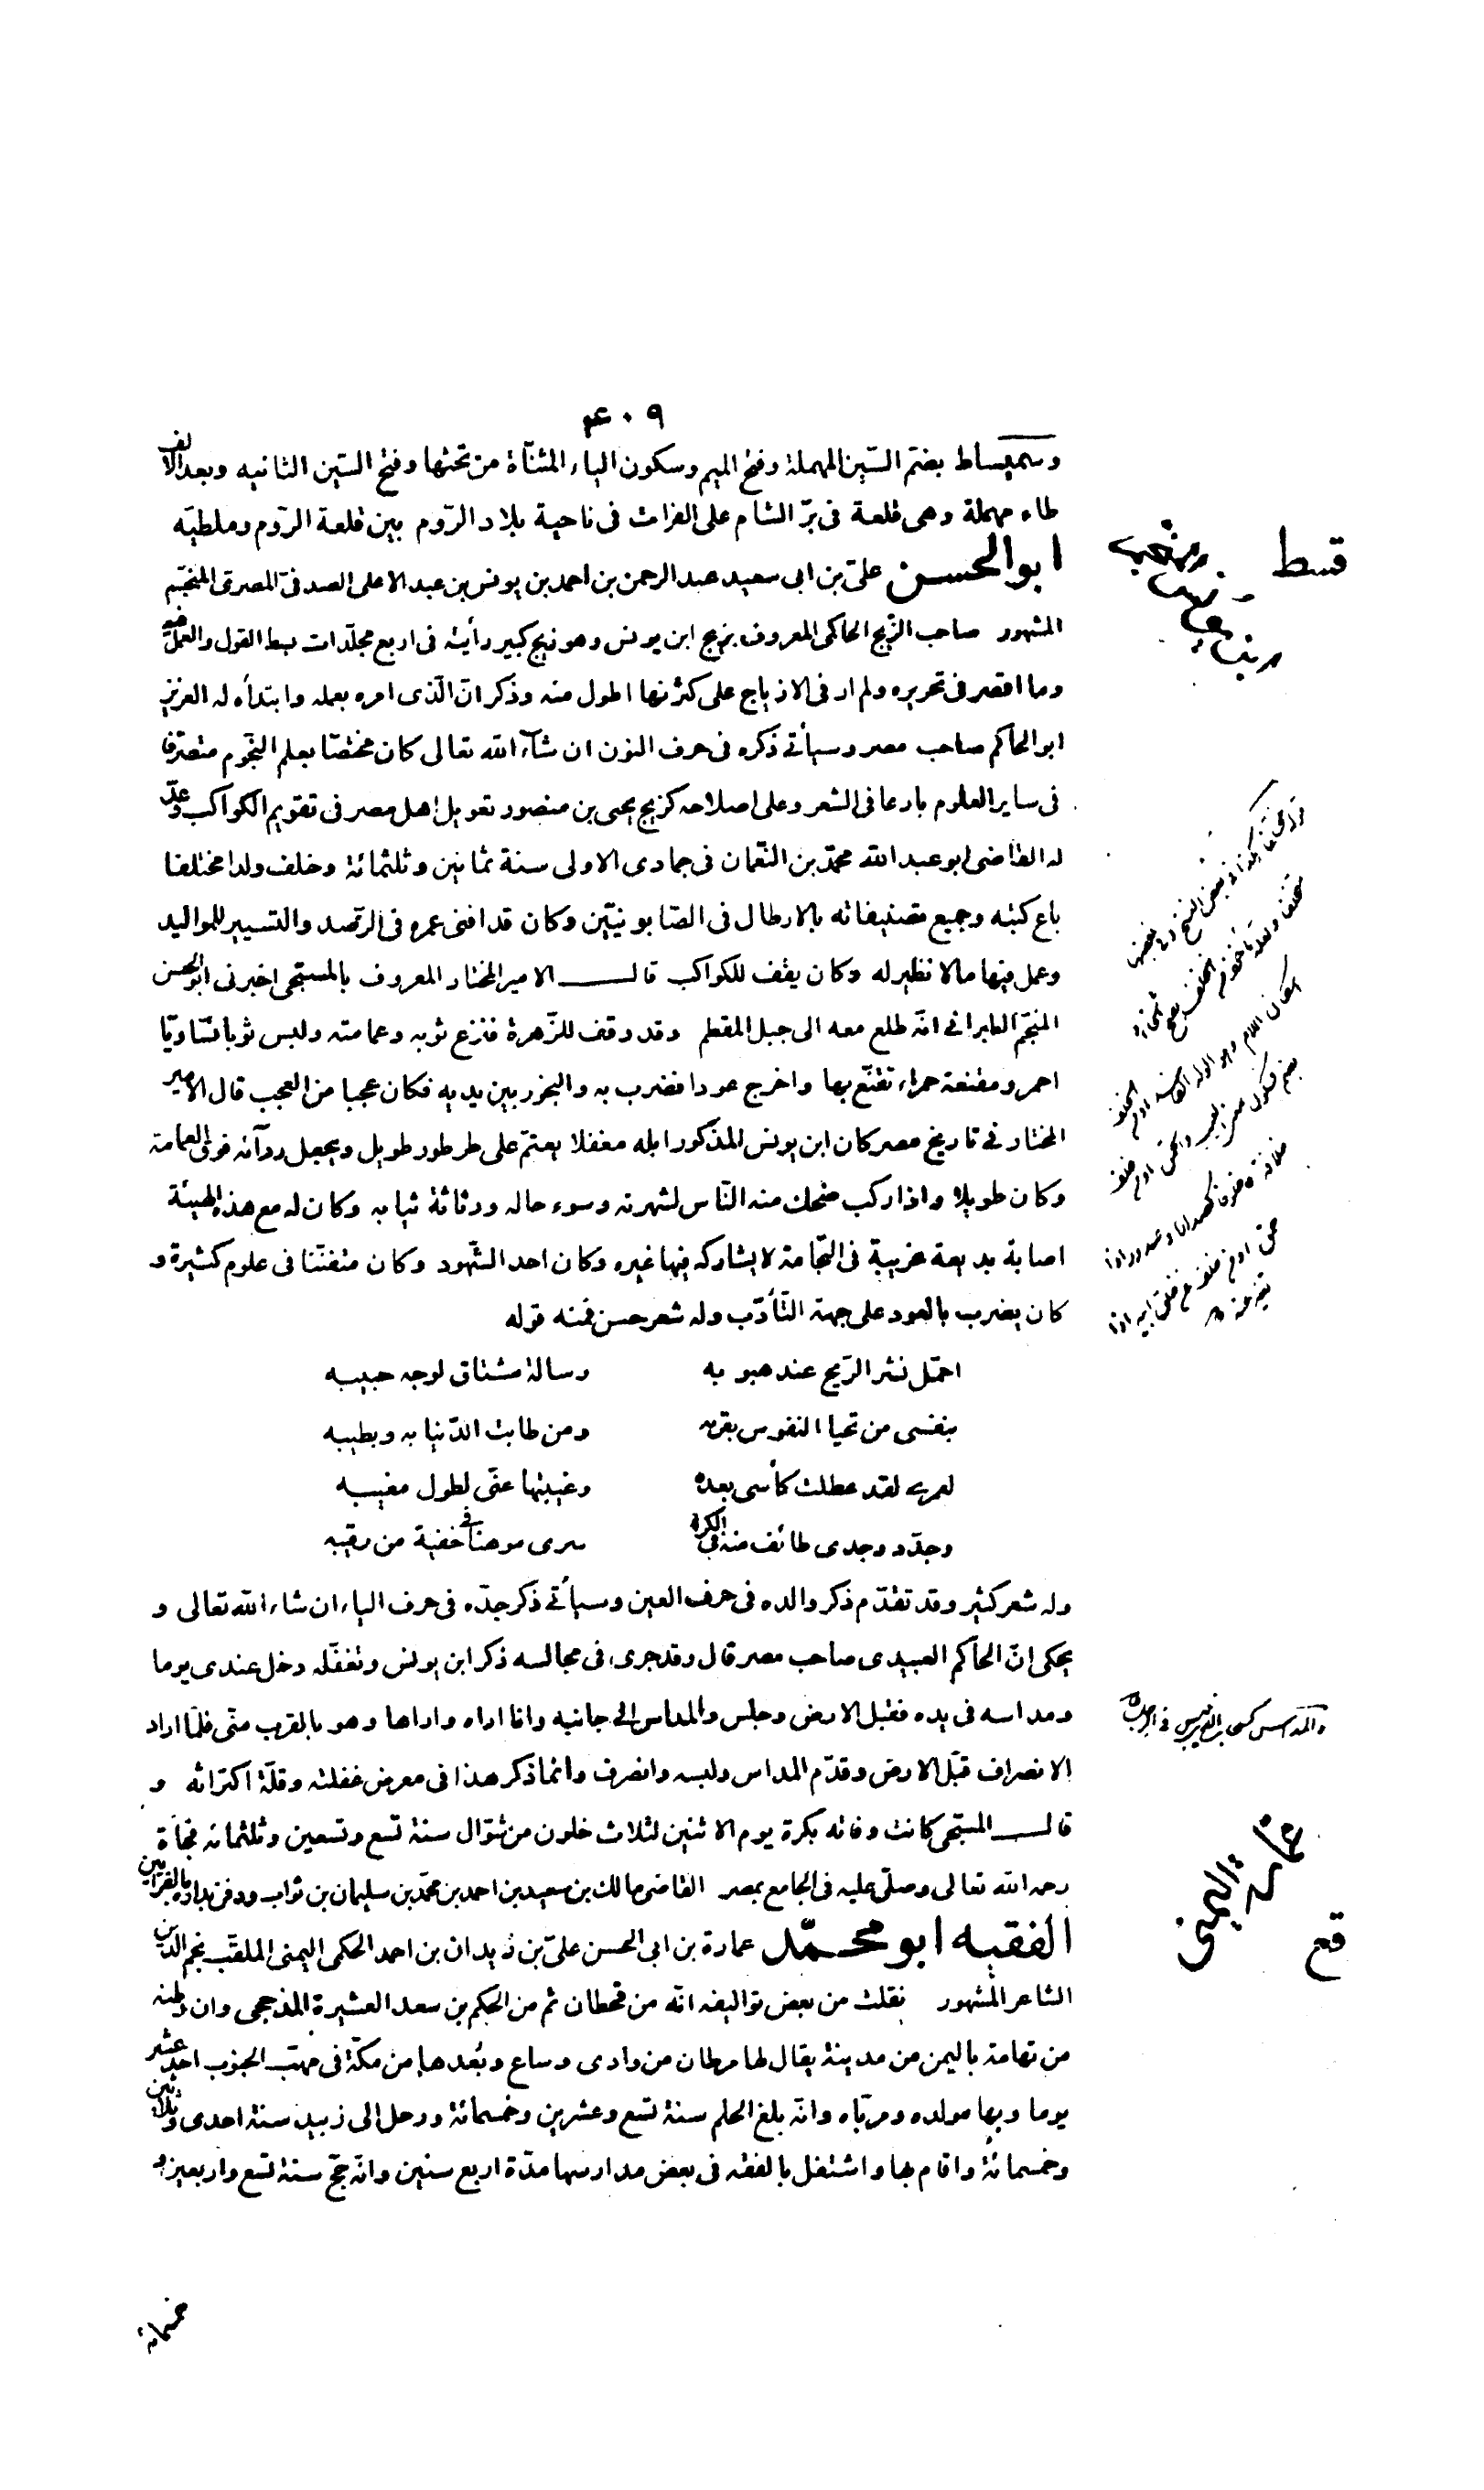 ۴۰۹
وسميساط بضم السّين المهملة وفتح الميم وسكون الياء المثنّاة من تحتها وفتح السّين الثانيه وبعد الالف
طاء مهملة وهى قلعة فى برّ الشام على الفرات فى ناحية بلاد الرّوم بين قلعة الرّوم وملطيّه
قسط
ابو الحسن علىّ بن ابى سعيد عبد الرحمن بن احمد بن يونس بن عبد الاعلى الصدفىّ المصرىّ المنجّم
المشهور صاحب الزّيج الحاكمى المعروف بزيج ابن يونس وهو زيج كبير رأيته فى اربع مجلّدات بسط القول والعمل فيه
وما اقصر فى تحريره ولم ار فى الازياج على كثرتها اطول منه وذكر انّ الّذى امره بعمله وابتدأه له العزيز
ابو الحاكم صاحب مصر وسيأتى ذكره فى حرف النون ان شآء الله تعالى كان مختصّا بعلم النّجوم متصرّفا
فى ساير العلوم بارعا فى الشعر وعلى اصلاحه كزيج يحيى بن منصور تعويل اهل مصر فى تقويم الكواكب وعدّ
له القاضى ابو عبد الله محمّد بن النّعمان فى جمادى الاولى سنة ثمانين وثلثمائة وخلف ولدا مختلفا
باع كتبه وجميع تصنيفاته بالارطال فى الصّابونيّين وكان قد افنى عمره فى الرّصد والتسيير للمواليد
وعمل فيها مالا نظير له وكان يقف للكواكب قال الامير المختار المعروف بالمسبّحى اخبرنى ابو الحسن
المنجّم الطبرانى انّه طلع معه الى جبل المقطم وقد وقف للزّهرة فنزع ثوبه وعمامته ولبس ثوبا نسّاويّا
احمر ومقنعة حمراء تقنّع بها واخرج عودا فضرب به والبخور بين يديه فكان عجبا من العجب قال الامير
المختار فى تاريخ مصر كان ابن يونس المذكور ابله مغفلا يعتمّ على طرطور طويل ويجعل ردآئه فوق العمامة
وكان طويلا واذا ركب ضحك منه النّاس لشهرته وسوء حاله ورثاثة ثيابه وكان له مع هذه الهيئة
اصابة بديعة غريبة فى النّجامة لا يشاركه فيها غيره وكان احد الشّهود وكان متفنّنا فى علوم كثيرة و
كان يضرب بالعود على جهة التّأدّب وله شعر حسن فمنه قوله
احمّل نشر الرّيح عند هبوبه رسالة مشتاق لوجه حبيبه
بنفسى من تحيا النفوس بقربه ومن طابت الدّنيا به وبطيبه
لعمرى لقد عطلت كأسى بعده وغيبتها عنّى لطول مغيبه
وجدّد وجدى طائف منه فى الكرى سرى موهنا فى خفية من رقيبه
وله شعر كثير وقد تقدّم ذكر والده فى حرف العين وسيأتى ذكر جدّه فى حرف الياء ان شاء الله تعالى و
يحكى انّ الحاكم العبيدى صاحب مصر قال وقد جرى فى مجالسه ذكر ابن يونس وتغفّله دخل عندى يوما
ومداسه فى يده فقبل الارض وجلس والمداس الى جانبه وانا اراه واراها وهو بالقرب منّى فلمّا اراد
الانصراف قبّل الارض وقدّم المداس ولبسه وانصرف وانّما ذكر هذا فى معرض غفلته وقلّة اكتراثه و
قال المسبّحى كانت وفاته بكرة يوم الاثنين لثلاث خلون من شوّال سنة تسع وتسعين وثلثمائه فجأة
رحمه الله تعالى وصلّى عليه فى الجامع بمصر القاضى مالك بن سعيد بن احمد بن محمّد بن سليمان بن ثواب ودفن بداره بالفرّائين
عمارة اليمنى
قع
الفقيه ابو محمّد عمارة بن ابى الحسن علىّ بن زيدان بن احمد الحكمى اليمنى الملقّب نجم الدّين
الشاعر المشهور نقلت من بعض تواليفه انّه من قحطان ثم من الحكم بن سعد العشيرة المذحجى وان وطنه
من تهامة باليمن من مدينة يقال لها مرطان من وادى وساع وبُعدها من مكّة فى مهبّ الجنوب احد عشر
يوما وبها مولده ومربّاه وانّه بلغ الحلم سنة تسع وعشرين وخمسمائة ورحل الى زبيد سنة احدى وثلاثين
وخمسمائة واقام بها واشتغل بالفقه فى بعض مدارسها مدّة اربع سنين وانّه حجّ سنة تسع واربعين و
خمسمائة